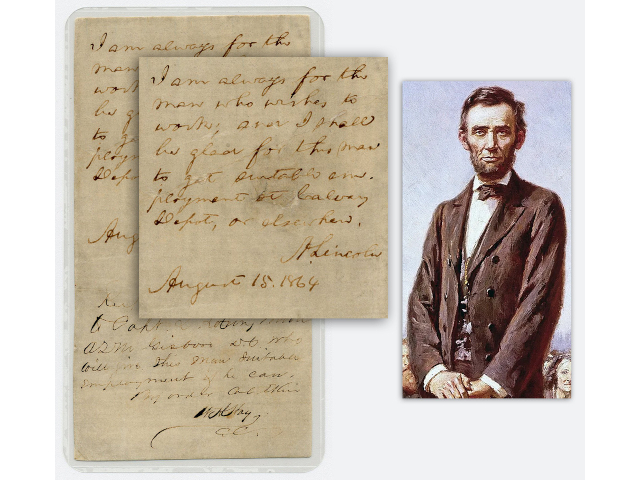 I am always for the
man
work
be g
to g
ploym
Depo
Aug
I am always for the
man who wishes to
work; and I shall
be glad for this man
to get suitable em-
ployment at Calvary
Depot, or elsewhere.
A. Lincoln
August 15. 1864
to Capt.
D.C. who
will give this man suitable
Employment if he can.
By order Col Ekin